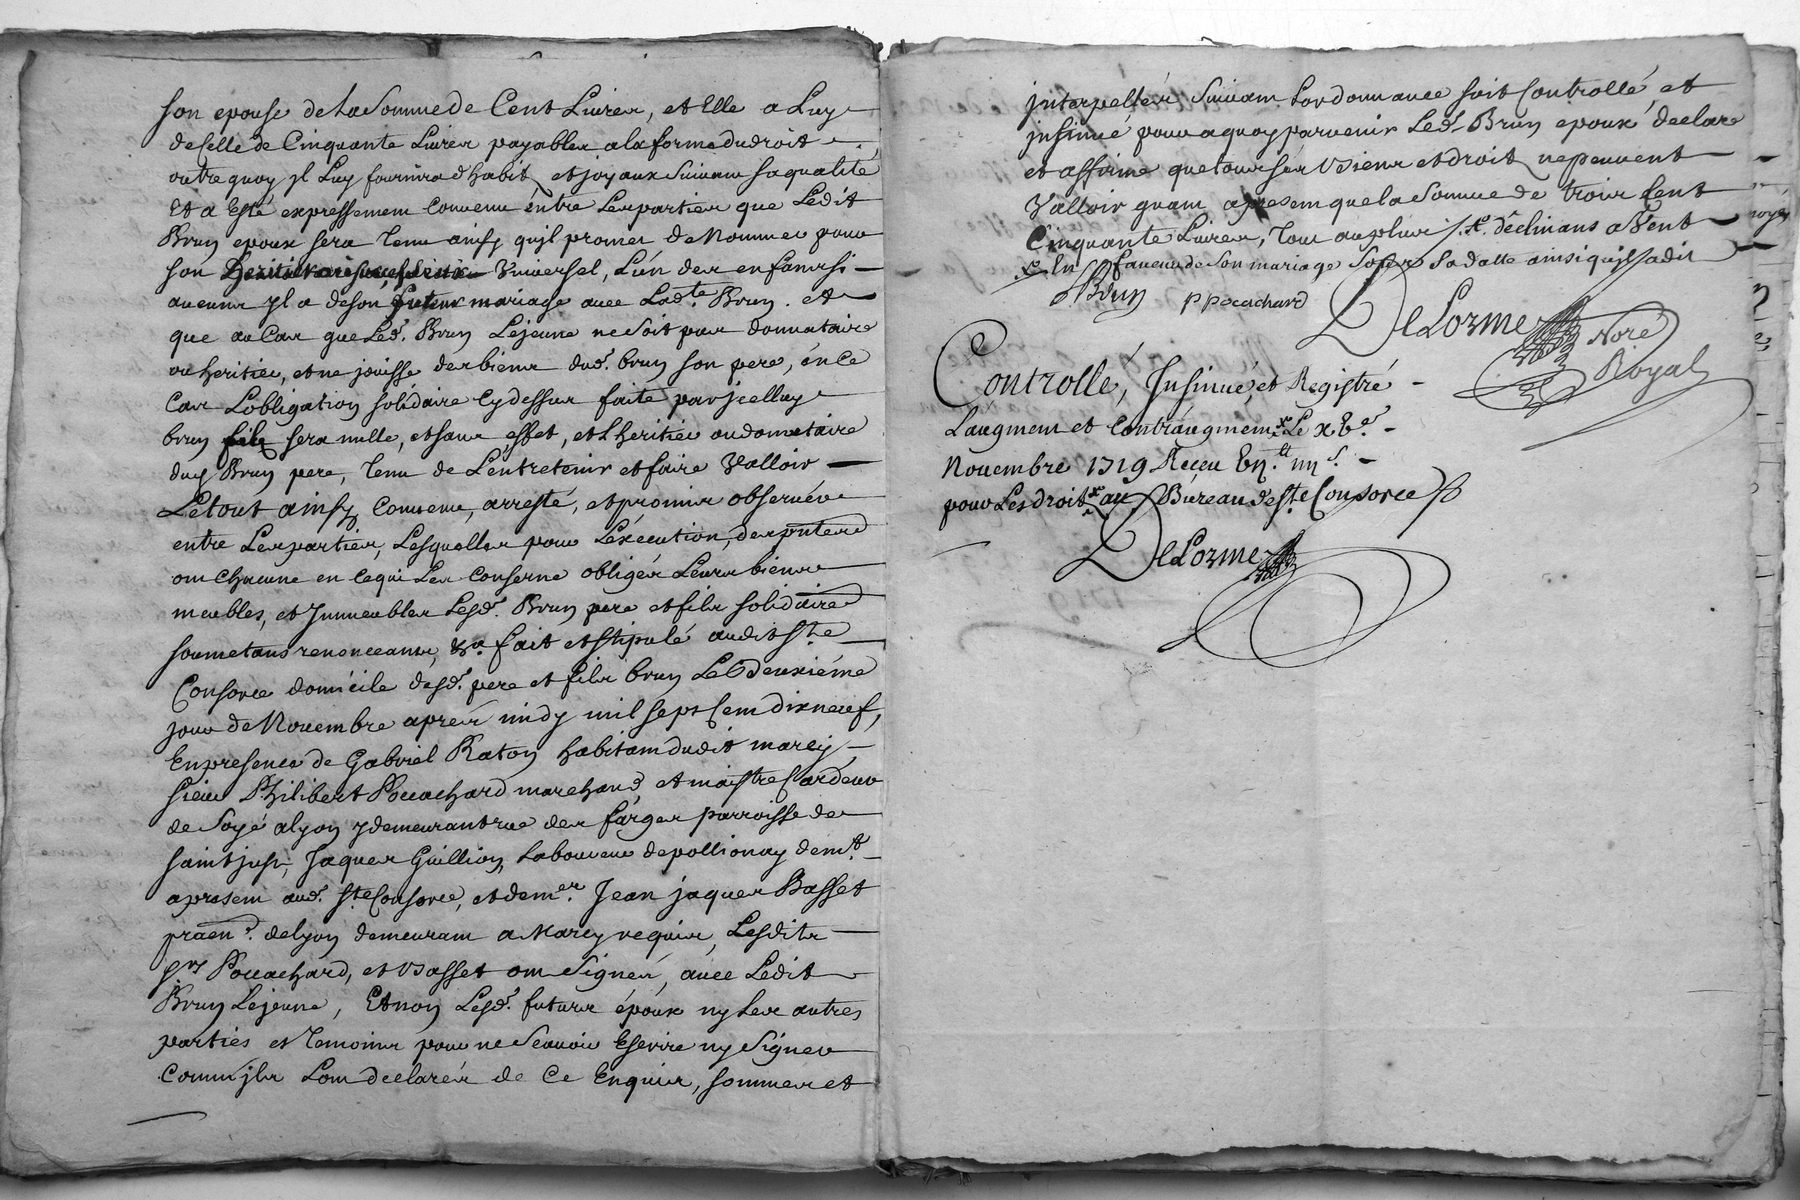 son epouse de la Somme de Cent Livres, et Elle a Luy
de Celle de Cinquante Livres payables a la forme du droit
outre quoy jl Luy fournira d'habits et joyaux Suivant sa qualité
Et a Esté expressement Convenu entre Les parties que Ledit
Brun epoux sera Tenu ainsy qu'jl promet de Nommer pour
son Universel, L'un des enfants si
aucuns jl a de son futeur mariage avec Lad.te Brun. et
que au Cas que Led.t Brun Lejeune ne soit pas donnataire
ou heritier, et ne jouisse des biens dud.t brun son pere, en Ce
Cas L'obligation solidaire Cy dessus faite par jcelluy
brun fils sera nulle, et sans effet, et L'heritier ou donnataire
dud brun pere, Tenu de L'entretenir et faire Valloir
Le tout ainsy Convenu, arresté, et promis observer
entre Les partier, Lesquelles pour L'execution des pntes
ont Chacune en Cequi Les Conserne obligés Leurs biens
meubles, et Jmmeubles Lesd.t Brun pere et fils solidaire
soumetans renonceants, &a fait et stipulé audit S.te
Consorce domicile desd.t pere et fils brun Le deuxiéme
jour de Novembre aprés midy mil sept Cent dixneuf,
En presence de Gabriel Raton habitant dudit marcy
sieur Philibert Pocachard marchand, et maistre Cardeur
de Soyé a Lyon y demeurant rue des farges parroisse de
saint just, Jaques Guillion Laboureur de pollionay dem.t
apresent aud.t S.te Consorce, et de m.er Jean jaques Basset
praen.t de Lyon demeurant a Marcy requis, Lesdits
s.rs Pocachard, et Basset ont signés, avec Ledit
Brun Lejeune, Et non Lesd.t futurs époux ny Les autres
parties et Temoins pour ne Scavoir Escrire ny Signer
Comm'jls L'ont declarés de Ce Enquis, sommes et
jnterpellés Suivant L'ordonnance soit Controllé, et
jnsinué pour a quoy parvenir Led.t Brun epoux declare
et affirme que tous ses biens et droits ne peuvent
Valloir quant apresent que la Somme de trois Cent
Cinquante Livres, Tout au plus
En faveur de son mariage
Brun ppocachard DeLorme Nore
Royal
Controllé, Jnsinué, et Registré
L'augment et Contr'augment Le
Novembre 1719 Receu
pour Les droits au Bureau de S.te Consorce
DeLorme